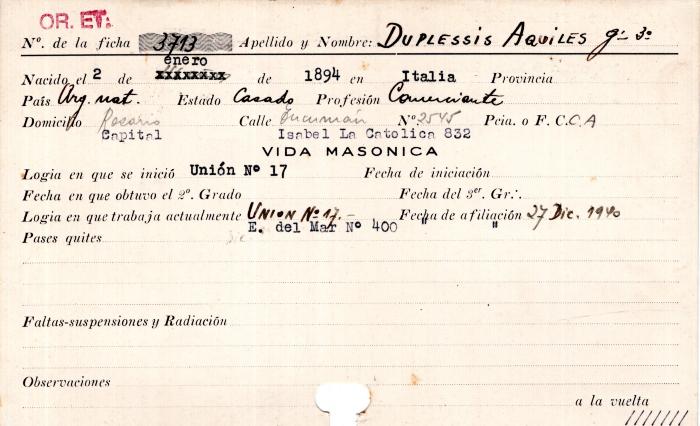 OR. ET.
Nº. de la ficha 3713 Apellido y Nombre: DUPLESSIS AQUILES gr 3º
enero
Nacido el 2 de xxxxxxxx de 1894 en Italia Provincia
País Arg. nat. Estado Casado Profesión Comerciante
Domicilio Rosario Calle Tucumán Nº 2545 Pcia. o F. C. C A
Capital Isabel La Catolica 832
VIDA MASONICA
Logia en que se inició Unión Nº 17 Fecha de iniciación
Fecha en que obtuvo el 2º. Grado Fecha del 3er. Gr∴.
Logia en que trabaja actualmente UNION Nº 17.- Fecha de afiliación 27 Dic. 1940
E. del Mar Nº 400 " "
Pases quites
Faltas-suspensiones y Radiación
Observaciones
a la vuelta
///////